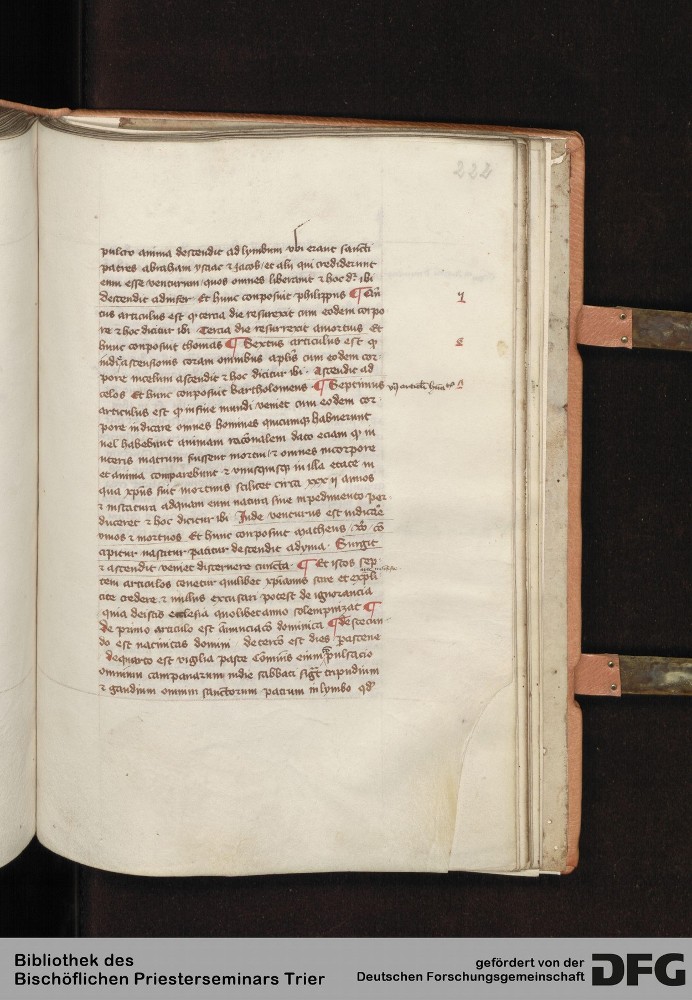 222
pulcro anima descendit ad lymbum vbi erant sancti
patres abraham ysaac & Jacob / et alij qui crediderunt
eum esse venturum / quos omnes liberauit & hoc dr ibi
descendit ad infer Et hunc conposuit philippus ¶
articulus est q tercia die resurexit cum eodem corpo
re & hoc dicitur ibi Tercia die resurrexit a mortuis Et
hunc conposuit thomas ¶ Sextus articulus est q
ascensionis coram omnibus aplis cum eodem cor
pore in celum ascendit & hoc dicitur ibi · Ascendit ad
celos Et hunc conposuit bartholomeus · ¶ Septimus
articulus est q in fine mundi veniet cum eodem cor
pore iudicare omnes homines quicumq habuerunt
uel habebunt animam racionalem dato eciam q in
uteris matrum fuissent mortui / & omnes in corpore
et anima comparebunt & vnusquisq in illa etate in
qua xpus fuit mortuus scilicet circa xxx ij annos
& in statura ad quam eum natura sine inpedimento per
duceret & hoc dicitur ibi Inde venturus est iudicare
viuos & mortuos Et hunc conposuit matheus
cipitur nascitur patitur descendit ad yma · Surgit
& ascendit veniet discernere cuncta · ¶ Et istos sep
tem articulos tenetur quilibet xpianus scire et expli
cite credere & nullus excusari potest de ignorancia
quia de istis ecclesia quolibet anno solempnizat ¶
de primo articulo est annunciacio dominica ¶ de secun
do est natiuitas domini · de tercio est dies parascene
de quarto est vigilia pasce enim pulsacio
omnium campanarum in die sabbati tripudium
& gaudium omnium sanctorum patrum in lymbo qd
Bibliothek des
Bischöflichen Priesterseminars Trier
gefördert von der
Deutschen Forschungsgemeinschaft
DFG